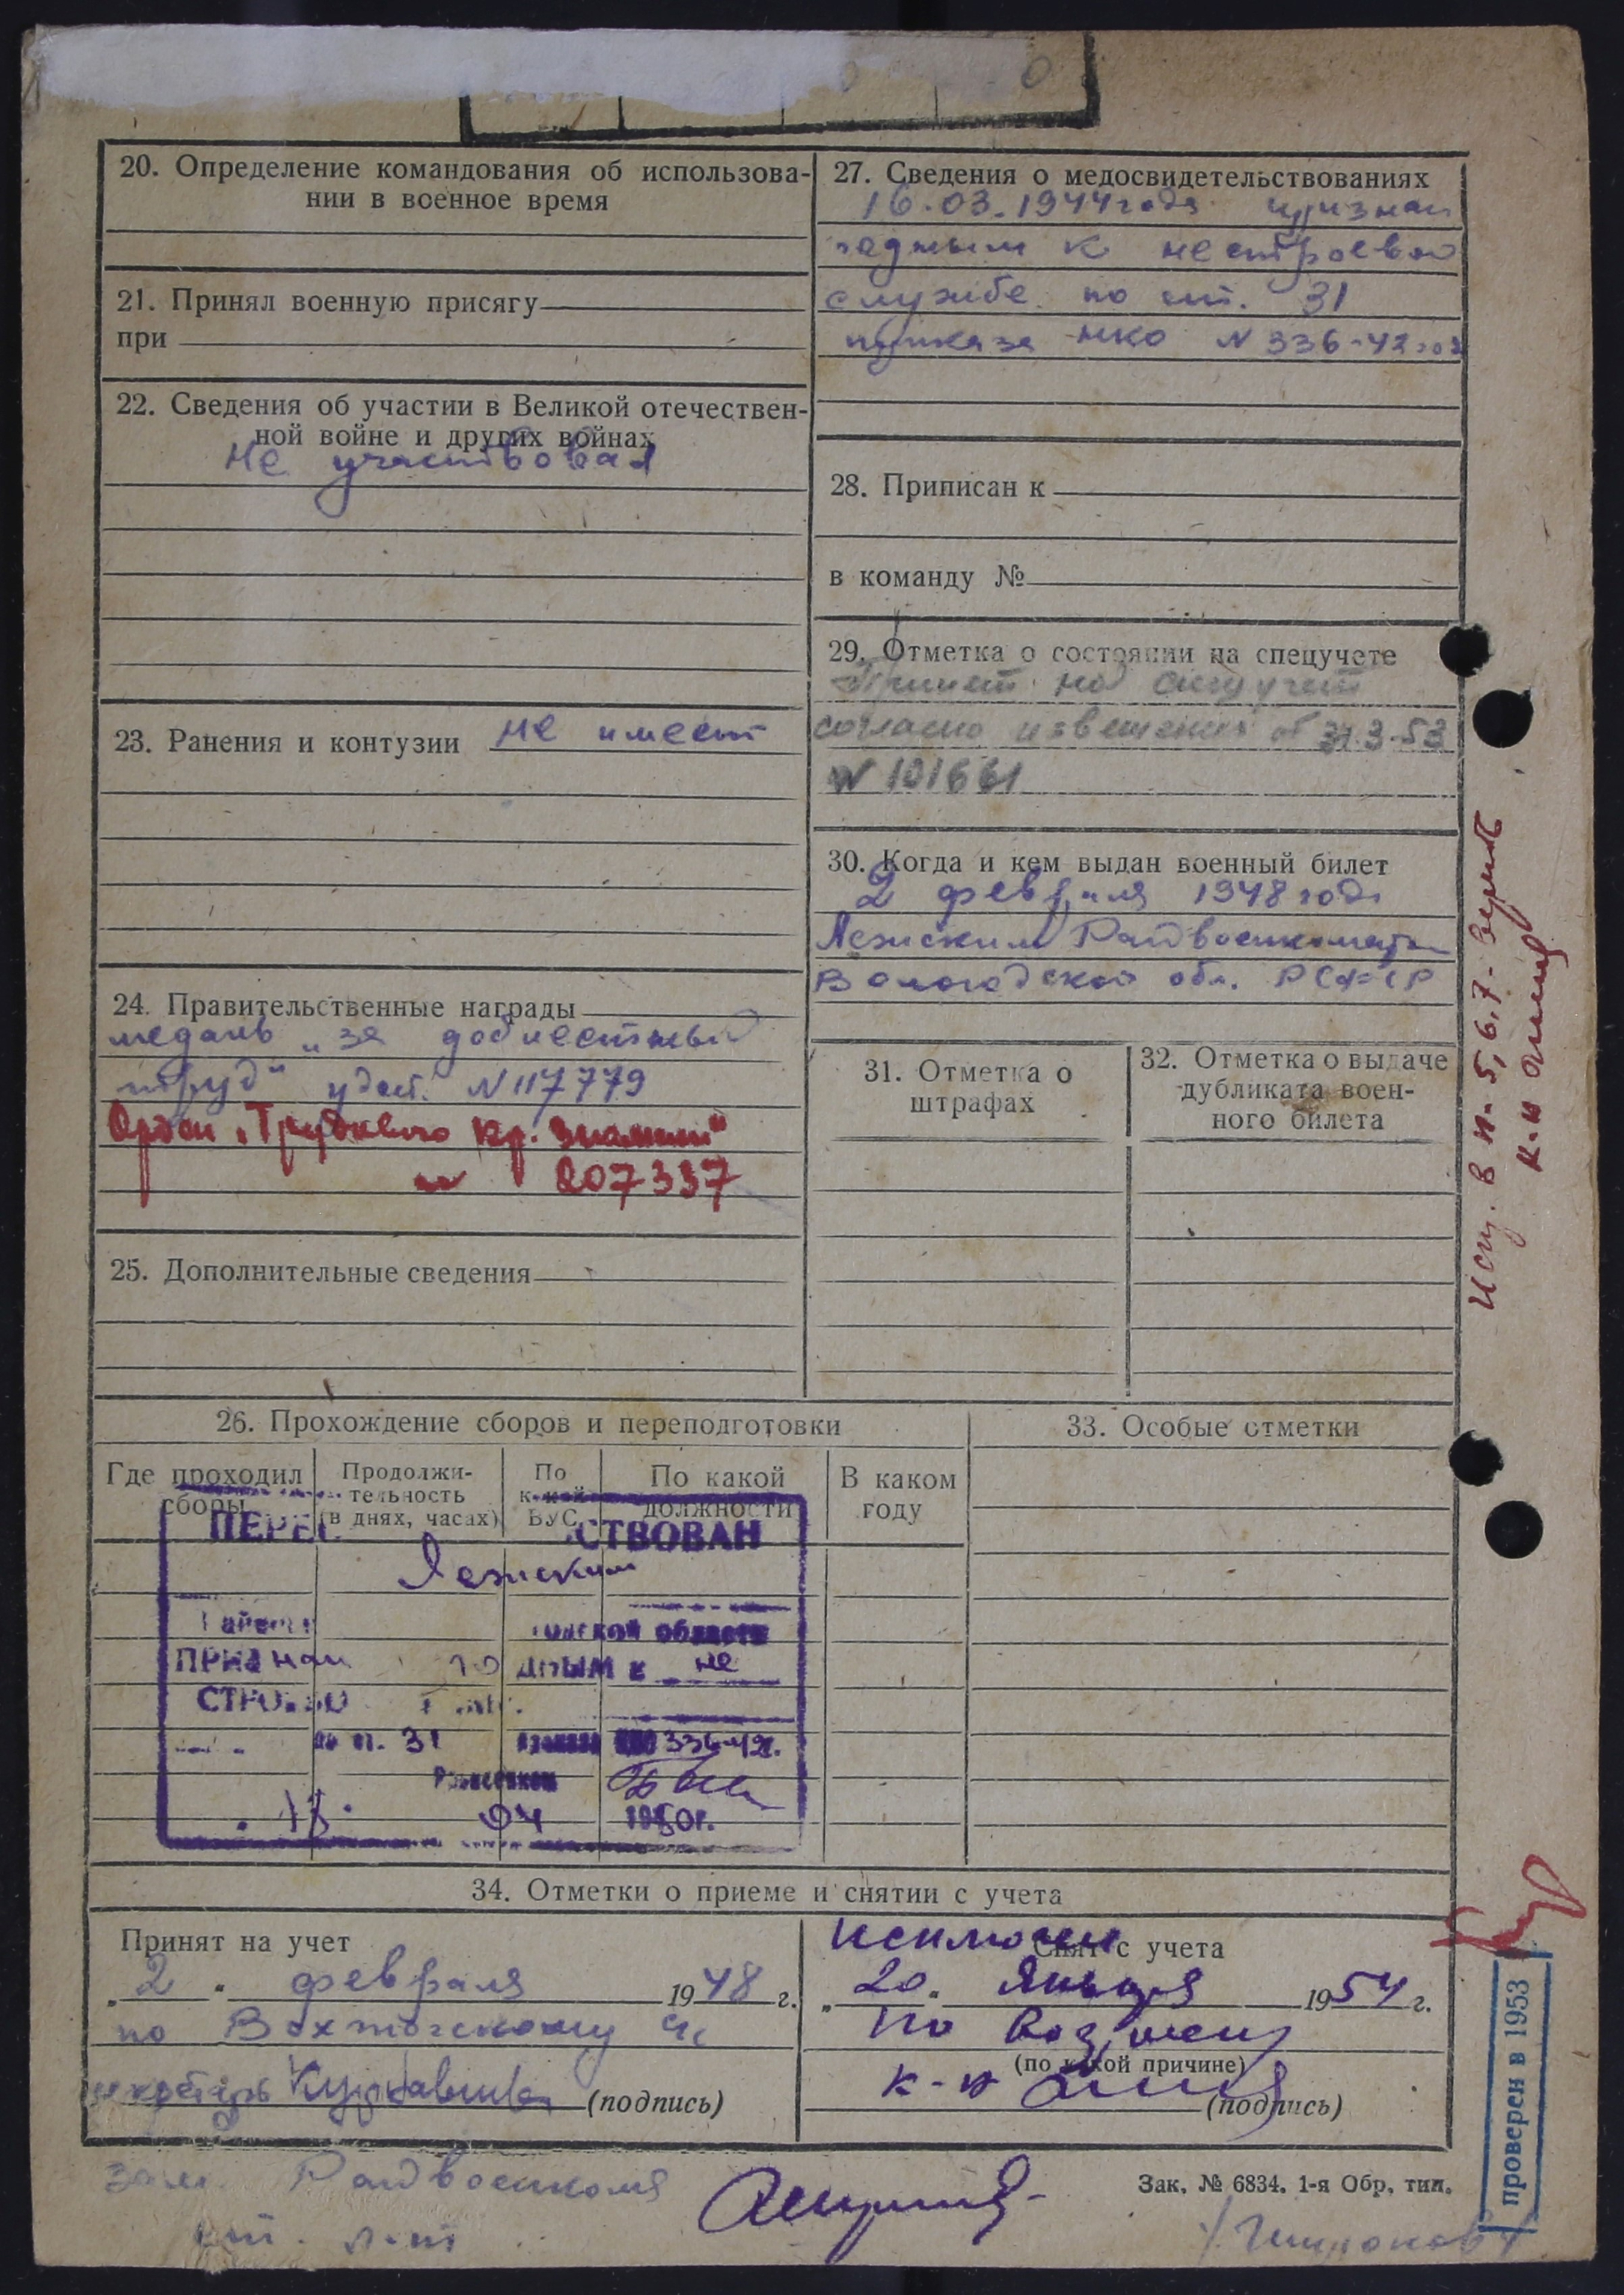 20. Определение командования об использова-
нии в военное время
21. Принял военную присягу
при
22. Сведения об участии в Великой отечествен-
ной войне и других войнах
не участвовал
23. Ранения и контузии не имеет
24. Правительственные награды
медаль „за доблестный
труд" удост. N 117779
Орден „Трудового Кр. Знамени"
№ 207337
25. Дополнительные сведения
27. Сведения о медосвидетельствованиях
16.03.1944 года признан
годным к нестроевой
службе по ст. 31
приказа НКО N 336-42 год
28. Приписан к
в команду №
29. Отметка о состоянии на спецучете
Принят на спецучет
согласно извещения от 31.3.53
N 101661
30. Когда и кем выдан военный билет
2 февраля 1948 года
Лежским Райвоенкоматом
Вологодской обл. РСФСР
31. Отметка о
штрафах
32. Отметка о выдаче
дубликата воен-
ного билета
Испр. в п. 5, 6, 7. верить
к-н
26. Прохождение сборов и переподготовки
Где проходил
сборы
Продолжи-
тельность
(в днях, часах)
По
какой
ВУС
По какой
должности
В каком
году
ПЕРЕ СТВОВАН
Лежским
области
ПРИЗНАН ГОДНЫМ К не
СТРОЕВО
по ст. 31 приказа НКО 336-42г.
Райвоенком
13. 04 1950г.
33. Особые отметки
34. Отметки о приеме и снятии с учета
Принят на учет
„2" февраля 1948 г.
по Вохтогскому
секретарь (подпись)
исключен
Снят с учета
„20" Января 1954 г.
по возрасту
(по какой причине)
к-н
(подпись)
зам. Райвоенкома
ст. л-т
Зак. № 6834. 1-я Обр. тип.
проверен в 1953